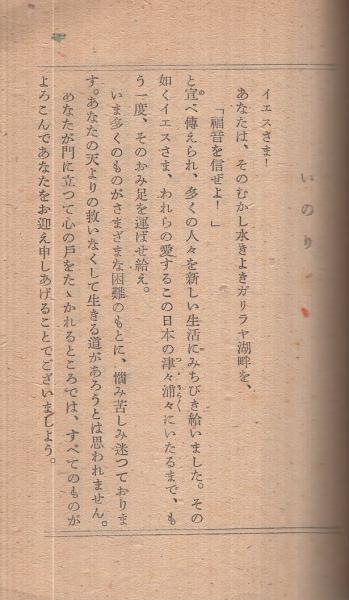 いのり
イエスさま！
あなたは、そのむかし水きよきガリラヤ湖畔を、
「福音を信ぜよ！」
と宣べ傳えられ、多くの人々を新しい生活にみちびき給いました。その
如くイエスさま、われらの愛するこの日本の津々浦々にいたるまで、も
う一度、そのおみ足を運ばせ給え。
いま多くのものがさまざまな困難のもとに、惱み苦しみ迷つておりま
す。あなたの天よりの救いなくして生きる道があろうとは思われません。
あなたが門に立つて心の戸をたゝかれるところでは、すべてのものが
よろこんであなたをお迎え申しあげることでございましよう。